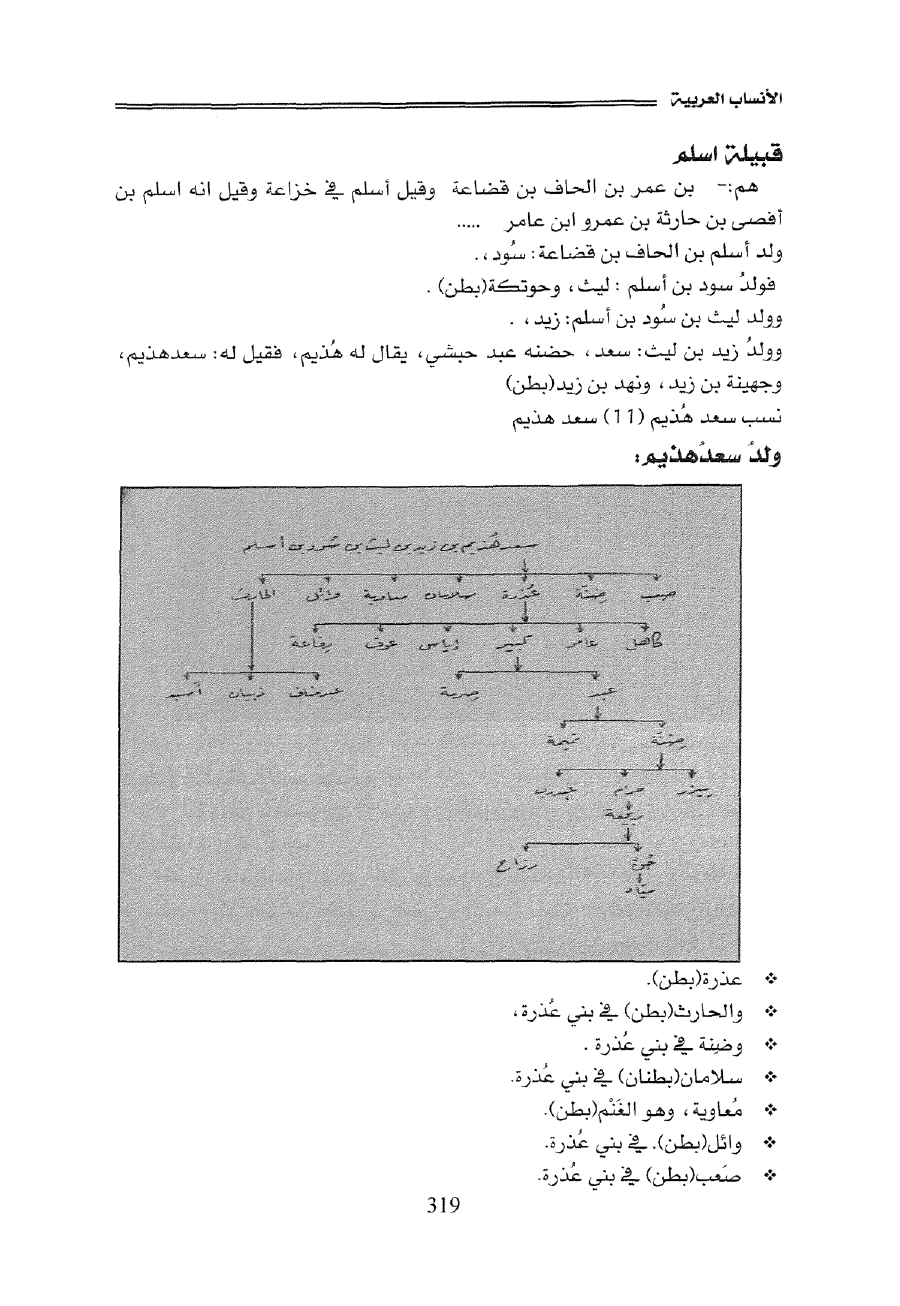 الأنساب العربية
قبيلة اسلم
هم:- بن عمر بن الحاف بن قضاعة وقيل أسلم في خزاعة وقيل انه اسلم بن
أفصى بن حارثة بن عمرو ابن عامر .....
ولد أسلم بن الحاف بن قضاعة: سُود، .
فولدُ سود بن أسلم : ليث، وحوتكة(بطن) .
وولد ليث بن سُود بن أسلم: زيد، .
وولدُ زيد بن ليث: سعد، حضنه عبد حبشي، يقال له هُذيم، فقيل له: سعدهذيم،
وجهينة بن زيد، ونهد بن زيد(بطن)
نسب سعد هُذيم (11) سعد هذيم
ولدُ سعدُهذيم:
سعد هُذيم بن زيد بن ليث بن سُود بن أسلم
صعب ضِنّة عُذرة سلامان معاوية وائل الحارث
كاهل عامر كبير إياس عوف رفاعة
عبد عبدمناف ذبيان أسيد
ضِنّة
حرام
ربيعة
رزاح
عذرة(بطن).
والحارث(بطن) في بني عُذرة،
وضِنة في بني عُذرة .
سلامان(بطنان) في بني عُذرة.
مُعاوية، وهو الغَنْم(بطن).
وائل(بطن). في بني عُذرة.
صَعب(بطن) في بني عُذرة.
319